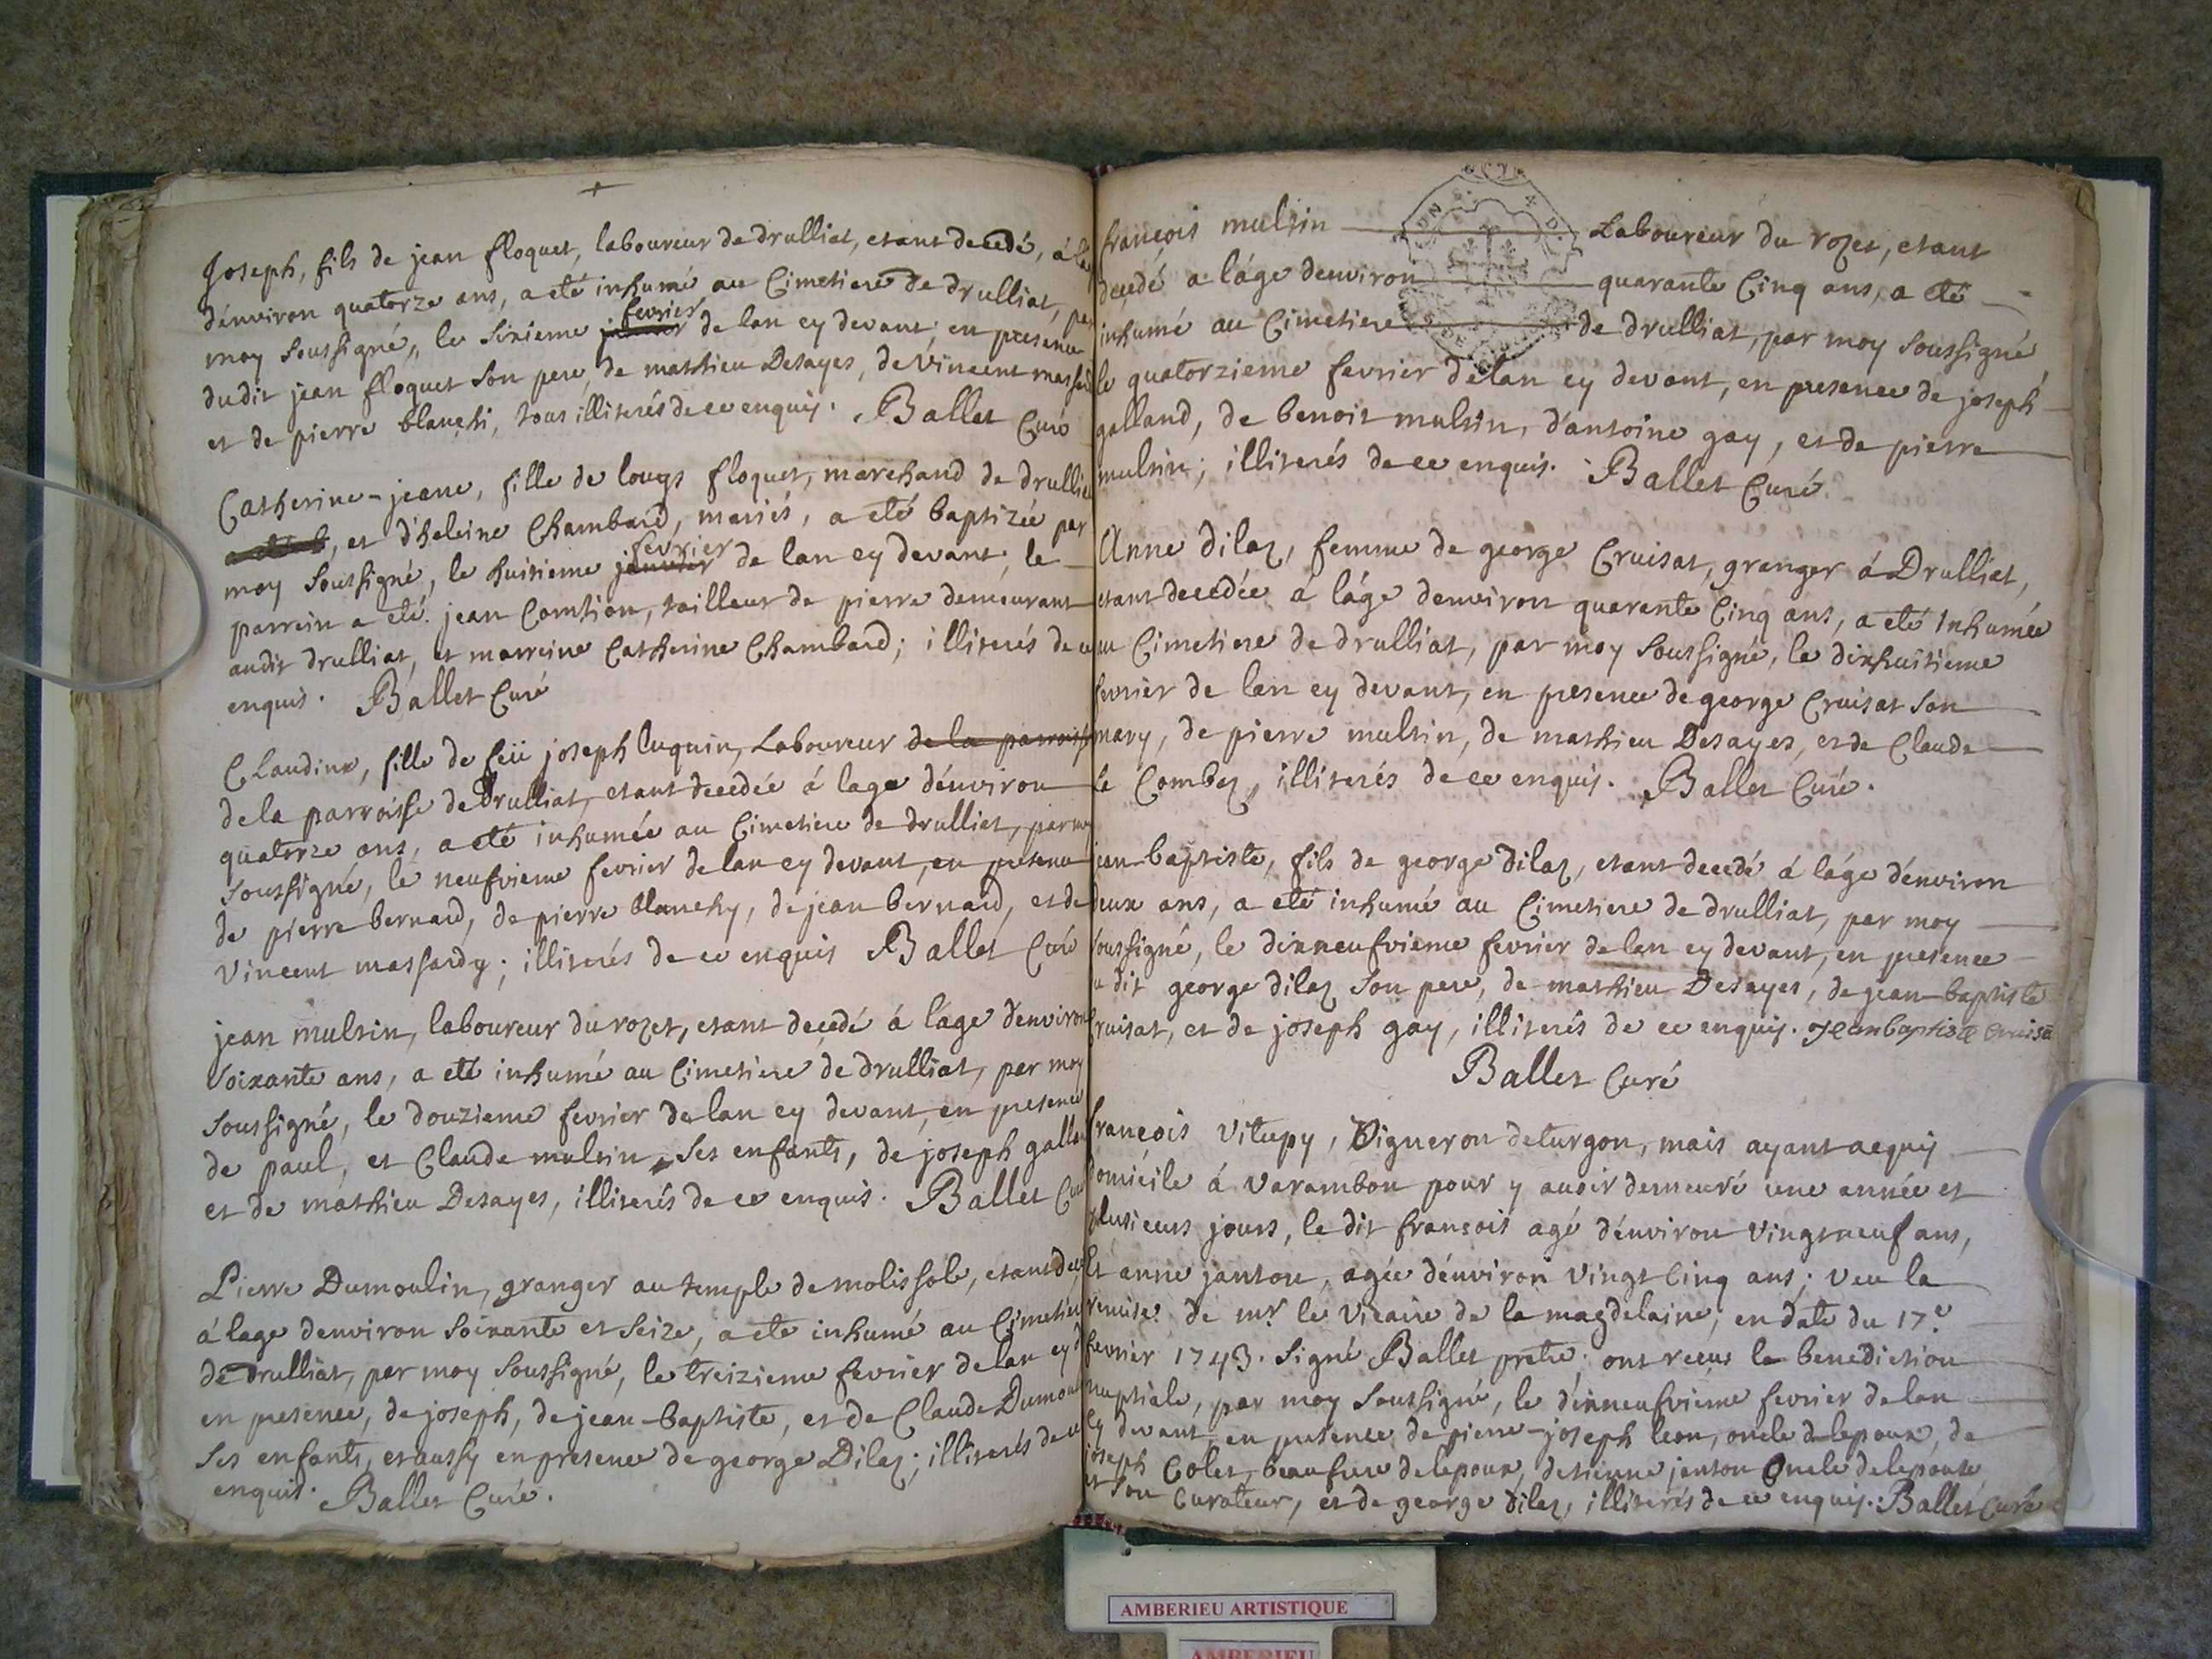 Joseph, fils de jean floquet, laboureur de drulliat, etant decedé, á la
d'environ quatorze ans, a eté inhumé au Cimetiere de drulliat, par
moy soussigné, le sixieme janvier fevrier de lan cy devant, en presence
dudit jean floquet son pere, de mathieu Desayes, de Vincent massard
et de pierre blanchi, tous illiterés de ce enquis. Ballet Curé
Catherine-jeane, fille de louys floquet, marchand de drulliat
et d'heleine Chambard, mariés, a eté baptizée par
moy soussigné, le huitieme janvier fevrier de lan cy devant, le
parrein a eté jean Comtion, tailleur de pierre demeurant
audit drulliat, et marreine Catherine Chambard; illiterés de ce
enquis. Ballet Curé
Claudine, fille de feü joseph luquin, Laboureur de la parroisse
de la parroisse de Drulliat, etant decedée á lage d'environ
quatorze ans, a eté inhumée au Cimetiere de drulliat, par moy
soussigné, le neufvieme fevrier de lan cy devant, en presence
de pierre bernard, de pierre blanchy, de jean bernard, et de
Vincent massardy; illiterés de ce enquis Ballet Curé
jean multin, laboureur du rozet, etant decedé á lage d'environ
soixante ans, a eté inhumé au Cimetiere de drulliat, par moy
soussigné, le douzieme fevrier de lan cy devant, en presence
de paul, et Claude multin, ses enfants, de joseph galland
et de mathieu Desayes, illiterés de ce enquis. Ballet Curé
Pierre Dumoulin, granger au temple de molissole, etant decedé
á lage d'environ soixante et seize, a eté inhumé au Cimetiere
de drulliat, par moy soussigné, le treizieme fevrier de lan cy d
en presence, de joseph, de jean-baptiste, et de Claude Dumoulin
ses enfants, et aussy en presence de george Dilaz; illiterés de ce
enquis. Ballet Curé.
françois multin Laboureur du rozet, etant
decedé a láge denviron quarante Cinq ans, a eté
inhumé au Cimetiere de drulliat, par moy soussigné,
le quatorzieme fevrier de lan cy devant, en presence de joseph
galland, de benoit multin, d'antoine gay, et de pierre
multin; illiterés de ce enquis. Ballet Curé
Anne dilaz, femme de george Cruisat, granger á Drulliat,
etant decedée á láge denviron quarente Cinq ans, a eté Inhumée
au Cimetiere de drulliat, par moy soussigné, le dixhuitieme
fevrier de lan cy devant, en presence de george Cruisat son
mary, de pierre multin, de mathieu Desayes, et de Claude
le Combez, illiterés de ce enquis. Ballet Curé.
jean-baptiste, fils de george dilaz, etant decedé á láge d'environ
deux ans, a eté inhumé au Cimetiere de drulliat, par moy
soussigné, le dixneufvieme fevrier de lan cy devant, en presence
du dit george dilaz son pere, de mathieu Desayes, de jean-baptiste
Cruisat, et de joseph gay, illiterés de ce enquis. Jean baptiste Cruisa
Ballet Curé
françois vitupy, Vigneron de turgon, mais ayant acquis
domicile á Varambon pour y avoir demeuré une année et
plusieurs jours, le dit françois agé d'environ vingt neuf ans,
Et anne janton, agée d'environ vingt Cinq ans; veu la
remise de mr. le Vicaire de la magdelaine, en date du 17e
fevrier 1743. signé Ballet pretre. ont reçus la benediction
nuptiale, par moy soussigné, le dixneufvieme fevrier de lan
Cy devant, en presence de pierre-joseph leon, oncle de lepoux, de
joseph Colet, beaufrere de lepoux, detienne janton Oncle de lepouse
et son Curateur, et de george dilaz, illiterés de ce enquis. Ballet Curé
AMBERIEU ARTISTIQUE
AMBERIEU